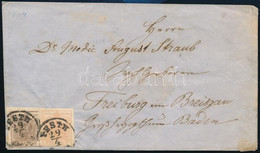 Herrn
Dr Medic August Straub
Hochgeboren
Freiburg im Breisgau
Großherzogthum Baden
PESTH
29
4
PESTH